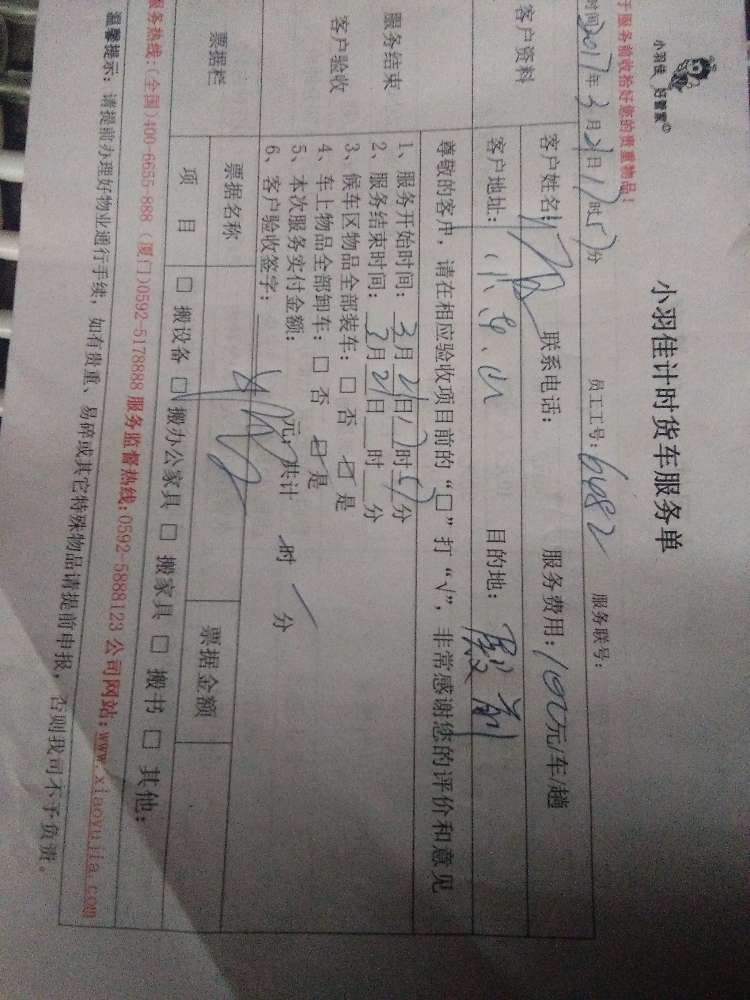 小羽佳 好管家©
小羽佳计时货车服务单
于服务前收拾好您的贵重物品！
时间2017年3月21日17时57分 员工工号：6482 服务联号：
客户资料
客户姓名： 联系电话： 服务费用：100元/车/趟
客户地址：小东山 目的地：殿前
服务结束
客户验收
尊敬的客户，请在相应验收项目前的“□”打“√”，非常感谢您的评价和意见
1、服务开始时间：3月21日17时57分
2、服务结束时间：3月21日 时 分
3、候车区物品全部装车：□ 否 ☑ 是
4、车上物品全部卸车：□ 否 ☑ 是
5、本次服务实付金额： 元，共计 时 分
6、客户验收签字：
票据栏
票据名称 票据金额
项 目 □ 搬设备 □ 搬办公家具 □ 搬家具 □ 搬书 □ 其他：
服务热线：(全国)400-6655-888（厦门)0592-5178888 服务监督热线：0592-5888123 公司网站：www.xiaoyujia.com
温馨提示：请提前办理好物业通行手续，如有贵重、易碎或其它特殊物品请提前申报，否则我司不予负责。